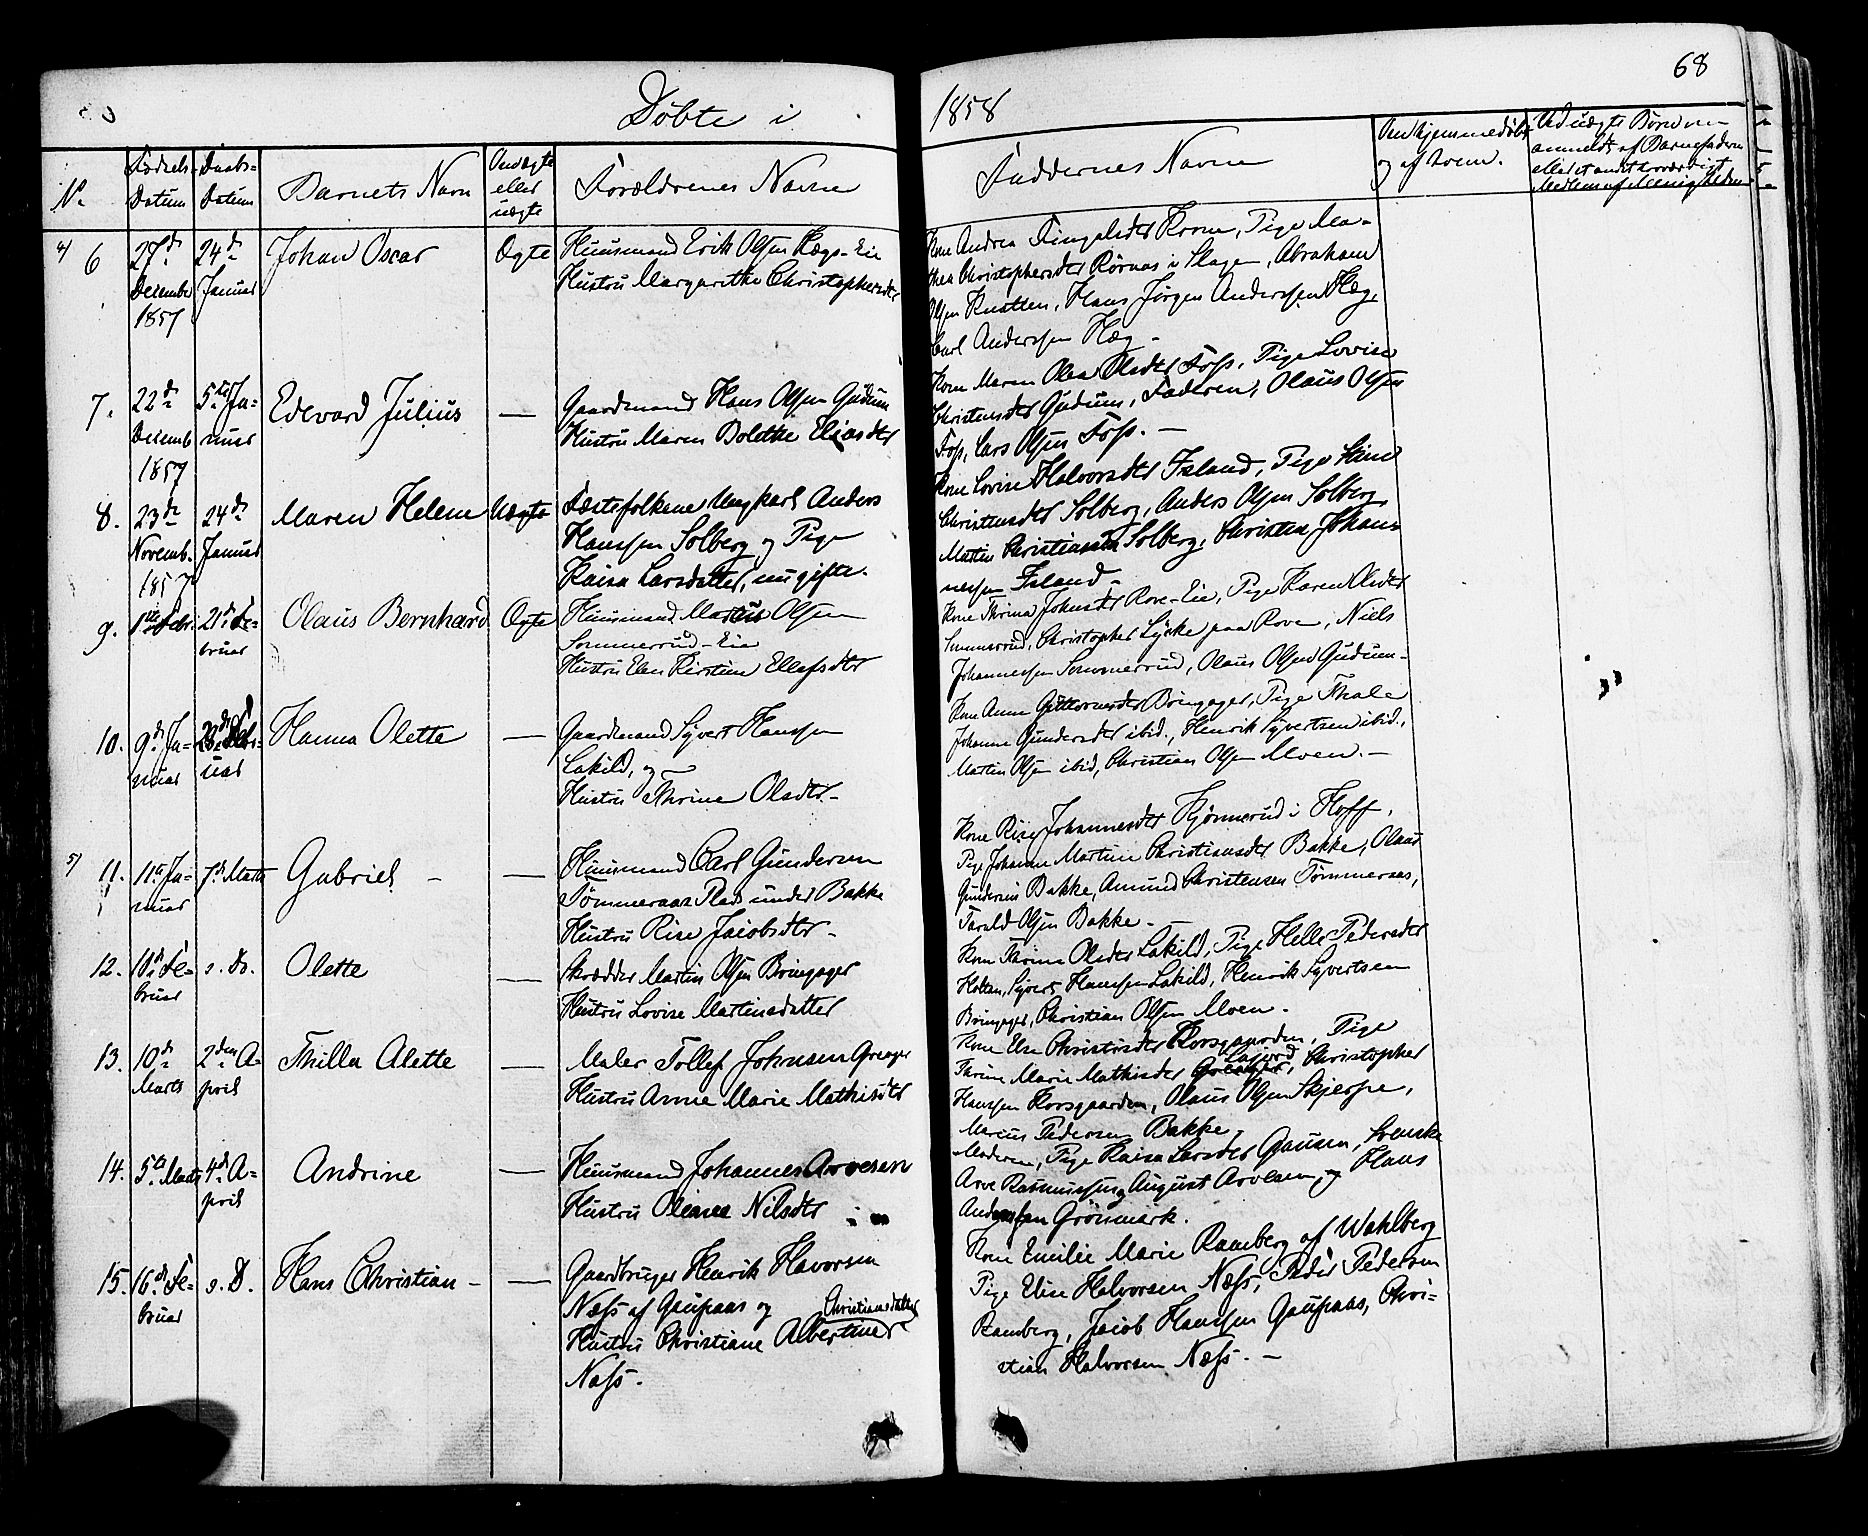 Döbte i 1858
68
No.
Fødsels-
Datum
Daabs-
Datum
Barnets Navn
Om ægte
eller
uægte
Forældrenes Navne
Faddernes Navne
Om hjemmedøbt
og af hvem.
Ved uægte Børn om
anmeldt af Barnefaderen
4) 6
27de
Decembr
1857
24de
Januar
Johan Oscar
Ægte
Huusmand Erik Olsen Hægs-Eie
Hustru Margarethe Christophersdtr
Kone Andrea Tingelsdtr Krone, Pige Ma-
thea Christophersdtr Rørnas i Slagen, Abraham
Olsen Knatten, Hans Jørgen Anderssen Hæg
Carl Anderssen Hæg -
7.
22de
Decemb
1857
5te Ja-
nuar
Edvard Julius
—
Gaardmand Hans Olsen Gudum
Hustru Maren Bolethe Eliasdtr
Kone Maren Olea Olsdtr Foss, Pige Lovise
Christensdtr Gudum, Faderen, Olaus Olsen
Foss, Lars Olsen Foss. —
8.
23de
Novemb.
1857
24de
Januar
Maren Helene
Uægte
Fæstefolkene Ungkarl Anders
Hanssen Solberg og Pige
Kaisa Larsdatter, nu gifte.
Kone Lovise Halvorsdtr Island, Pige Stine
Christensdtr Solberg, Anders Olsen Solberg,
Martin Christiansen Solberg, Christen Johan-
nessen Island
9.
1ste Febr.
21de Fe-
bruar
Olaus Bernhard
Ægte
Huusmand Martin Olsen
Sommerrud-Eie
Hustru Elen Kirstine Ellefsdtr
Kone Thrina Johnsdtr Rove-Eie, Pige Karen Olsdtr
Sommerrud, Christopher Lycke paa Roven, Niels
Johannessen Sommerrud, Olaus Olsen Gudum-
10.
9de Ja-
nuar
28de Febr-
uar
Hanna Olette
—
Gaardmand Syvert Hanssen
Lakild, og
Hustru Thrine Olsdtr-
Kone Anne Guttormsdtr Bringager, Pige Thale
Johanne Gundersdtr ibid., Henrik Syvertsen ibid.,
Martin Olsen ibid, Christian Olsen Moen. —
5) 11.
11te Ja-
nuar
7de Marts
Gabriel -
—
Huusmand Carl Gundersen
Tømmeraas Plads under Bakke
Hustru Rise Jacobsdtr-
Kone Rise Johannesdtr Kjønnerud i Hoff,
Pige Johanne Martine Christiansdtr Bakke, Olaus
Gundersen Bakke, Amund Christensen Tømmeraas,
Tarald Olsen Bakke -
12.
10de Fe-
bruar
s. Do.
Olette
—
Skrædder Martin Olsen Bringager
Hustru Lovise Martinsdatter
Kone Thrine Olsdtr Lakild, Pige Helle Pedersdtr
Holtan, Syvert Hanssen Lakild, Henrik Syvertsen
Bringager, Christian Olsen Moen.
13.
10de
Marts
2den A-
pril
Thilla Alette
—
Maler Tollef Johnsen Greager
Hustru Anne Marie Mathisdtr
Kone Else Christisdtr Korsgaarden, Pige
Thrine Marie Mathisdtr Greager, Christopher
Hanssen Korsgaarden, Olaus Olsen Skjerpe,
Marius Pedersen Bakke,
14.
5te Marts
4de A-
pril
Andrine
—
Huusmand Johannes Arvesen
Hustru Oliana Nilsdtr
Moderen, Pige Kaisa Larsdtr Gausen, Svenske
Arve Rasmussen, August Arvesen, og Hans
Anderssen Grönmark.
15.
16de Fe-
bruar
s. D.
Hans Christian -
—
Gaardbruger Henrik Havorsen
Næss af Gaupaas og
Christiansdatter
Hustru Christiane Albertine
Næss.
Kone Emilie Marie Ramberg af Wahlberg
Pige Elise Halvorsen Næss, Peder Pedersen
Ramberg, Jacob Hanssen Gaupaas, Chri-
stian Halvorsen Næss. —